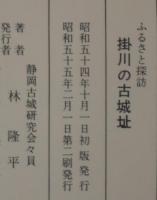 ふるさと探訪
掛川の古城址
昭和五十四年十月一日初版発行
昭和五十五年二月一日第二刷発行
静岡古城研究会々員
著者 林隆平
発行者